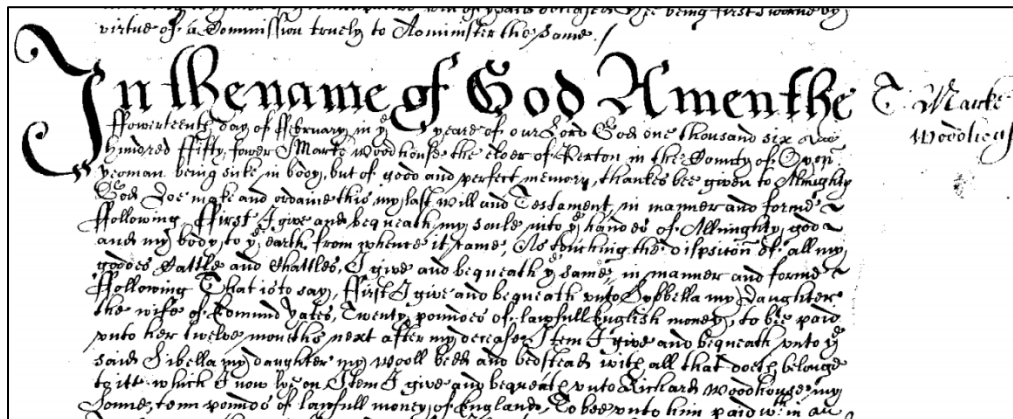 being first sworne by
virtue of a Commission truely to Administer the same /
In the name of God Amen the
T Marke
Woodhous
ffowerteenth day of ffebruary in ye yeare of our Lord God one thousand six
hundred ffifty fower I Marke Woodhouse the elder of in the County of Oxon
yeoman being sicke in body, but of good and perfect memory, thankes bee given to Almighty
God, Doe make and ordaine this my last will and Testament, in manner and forme
ffollowing, ffirst I give and bequeath my soule into ye handes of Allmighty god
and my body to ye earth from whence it came, As touching the dispsition of all my
goodes Cattle and Chattles, I give and bequeath ye same, in manner and forme
ffollowing That is to say, ffirst I give and bequeath vnto Sybbella my Daughter
the wife of Edmund yates, Twenty poundes of lawfull English money, to bee paid
vnto her twelve monthes next after my decease, Item I give and bequeath vnto ye
said Sibella my daughter my wooll bedd and bedstead with all that doeth belonge
to itt which I now lye on Item I give and bequeath vnto Richard Woodhouse my
Sonne tenn poundes of lawfull money of England, To bee vnto him paid wthin